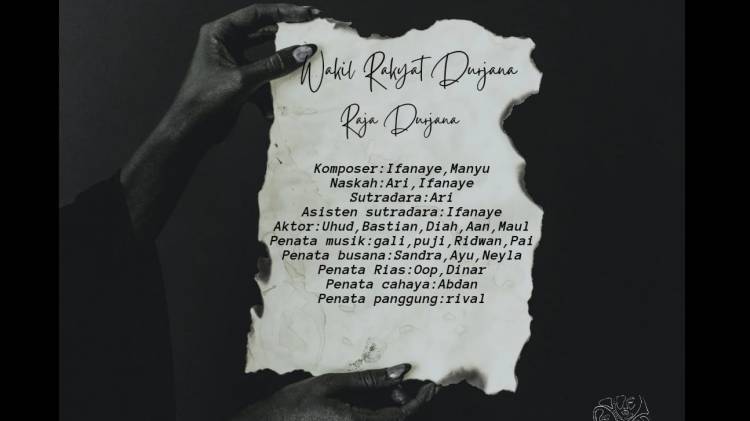 Wakil Rakyat Durjana
Raja Durjana
Komposer:Ifanaye,Manyu
Naskah:Ari,Ifanaye
Sutradara:Ari
Asisten sutradara:Ifanaye
Aktor:Uhud,Bastian,Diah,Aan,Maul
Penata musik:gali,puji,Ridwan,Pai
Penata busana:Sandra,Ayu,Neyla
Penata Rias:Oop,Dinar
Penata cahaya:Abdan
Penata panggung:rival